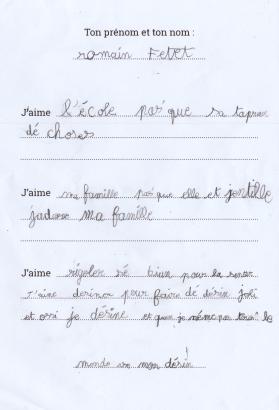 Ton prénom et ton nom :
romain Fetet
J'aime l'école par que sa taprend
dé choses
J'aime ma famille par que elle et jentille
jadore ma famille
J'aime rigoler sé bien pour la
J'aime désiner pour faire dé désin joli
et osi je désine et quan je même pas tout le
monde sur mon désin